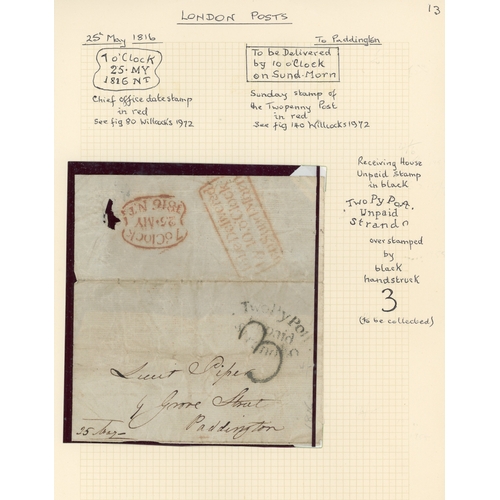 LONDON POSTS
13
25th May 1816
To Paddington
7 o'Clock
25·MY
1816 NT
To be Delivered
by 10 o'Clock
on Sund·Morn
Chief office datestamp
in red
See fig 80 Willcocks 1972
Sunday stamp of
the Twopenny Post
in red
See fig 140 Willcocks 1972
Receiving House
Unpaid Stamp
in black
Two Py Post
Unpaid
Strand
overstamped
by
black
handstruck
3
(to be collected)
7 oClock
25·MY
1816 NT
To be Delivered
by 10 o'Clock
on Sund Morn
Two Py Post
Unpaid
Strand
3
Lieut Piper
Grove Street
Paddington
25 May